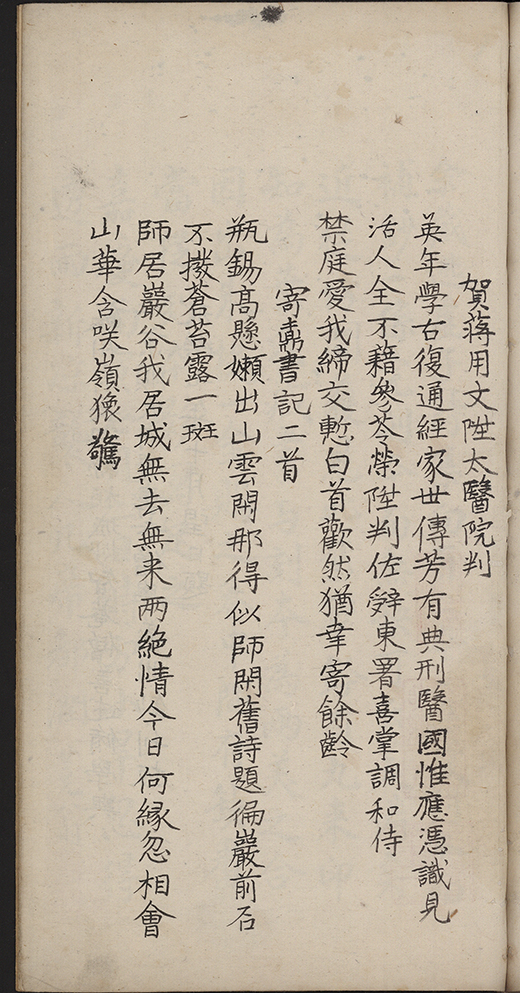 賀蔣用文陞太醫院判
英年學古復通經家世傳芳有典刑醫國惟應憑識見
活人全不藉參苓榮陞判佐辭東署喜掌調和侍
禁庭愛我締交慙白首歡然猶幸寄餘齡
寄鼒書記二首
瓶錫高懸嬾出山雲閑那得似師閑舊詩題徧巖前石
不撥蒼苔露一斑
師居巖谷我居城無去無来兩絶情今日何緣忽相會
山華含咲嶺猿驚